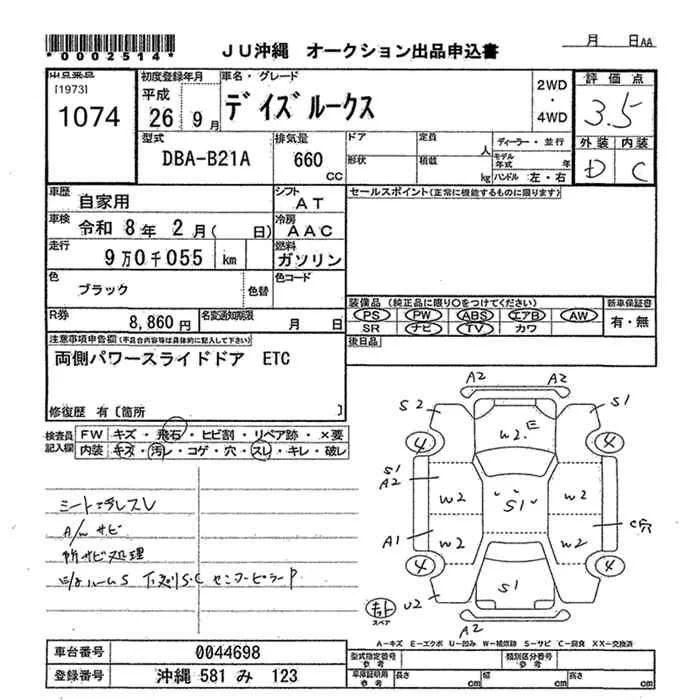 *0002514*
JU沖縄 オークション出品申込書
月 日AA
出品番号
[1973]
1074
初度登録年月
平成
26 9月
車名・グレード
デイズルークス
2WD
・
4WD
評価点
3.5
外装 内装
D C
型式
DBA-B21A
排気量
660
CC
ドア
形状
定員
人
積載
kg
ディーラー・並行
モデル年式 年
ハンドル 左・右
車歴
自家用
シフト
AT
セールスポイント(正常に機能するものに限ります)
車検
令和 8年 2月( 日)
冷房
AAC
走行
9万0千055 km
燃料
ガソリン
色
ブラック
色替
色コード
R券
8,860円
名変通知期限
月 日
装備品(純正品に限り〇をつけてください)
PS PW ABS エアB AW
SR ナビ TV カワ
新車保証書
有・無
後日品
注意事項申告欄(不具合内容等は具体的に記入して下さい)
両側パワースライドドア ETC
修復歴 有〔箇所 〕
検査員
記入欄
FW キズ・飛石・ヒビ割・リペア跡・×要
内装 キズ・汚レ・コゲ・穴・スレ・キレ・破レ
シートヨゴレスレ
A/Wサビ
所サビ処理
A2 A2
S2 S1
4 4
W2 E
S1
A2
W2 S1 W2
A1 W2 W2 C穴
4 4
S1
U2
スペア
A2
A-キズ E-エクボ U-凹み W-補修跡 S-サビ C-腐食 XX-交換済
車台番号
0044698
登録番号
沖縄 581 み 123
型式指定番号
参考
類別区分番号
参考
車庫証明用
参考
長さ cm 幅 cm 高さ cm